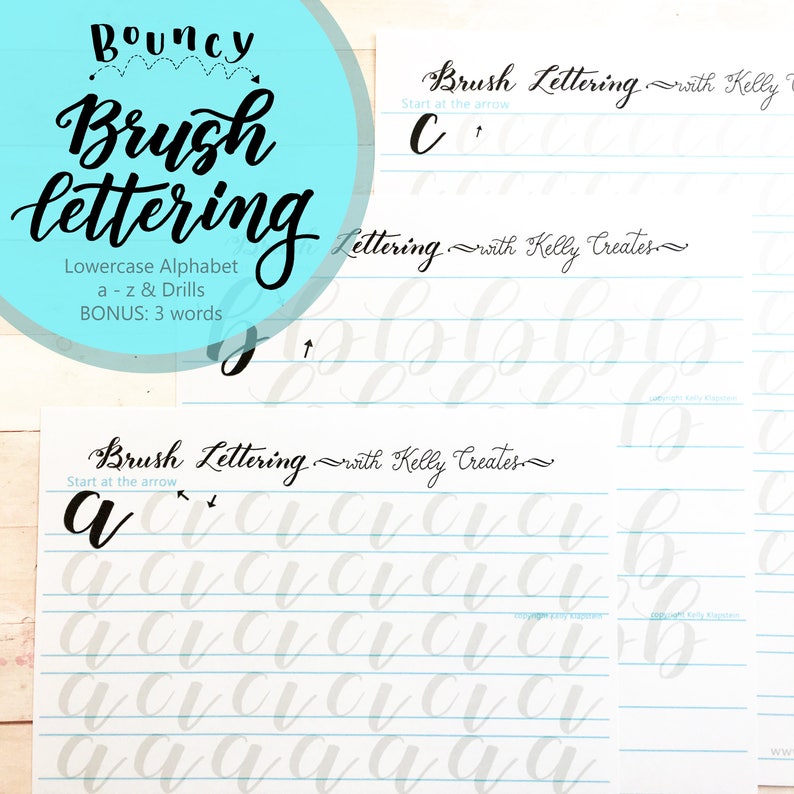 Bouncy
Brush
lettering
Lowercase Alphabet
a - z & Drills
BONUS: 3 words
Brush Lettering with Kelly
Start at the arrow
c
Lettering with Kelly Creates
b
copyright Kelly Klapstein
Brush Lettering with Kelly Creates
Start at the arrow
a
copyright Kelly Klapstein
copyright Kelly Klapstein
www.